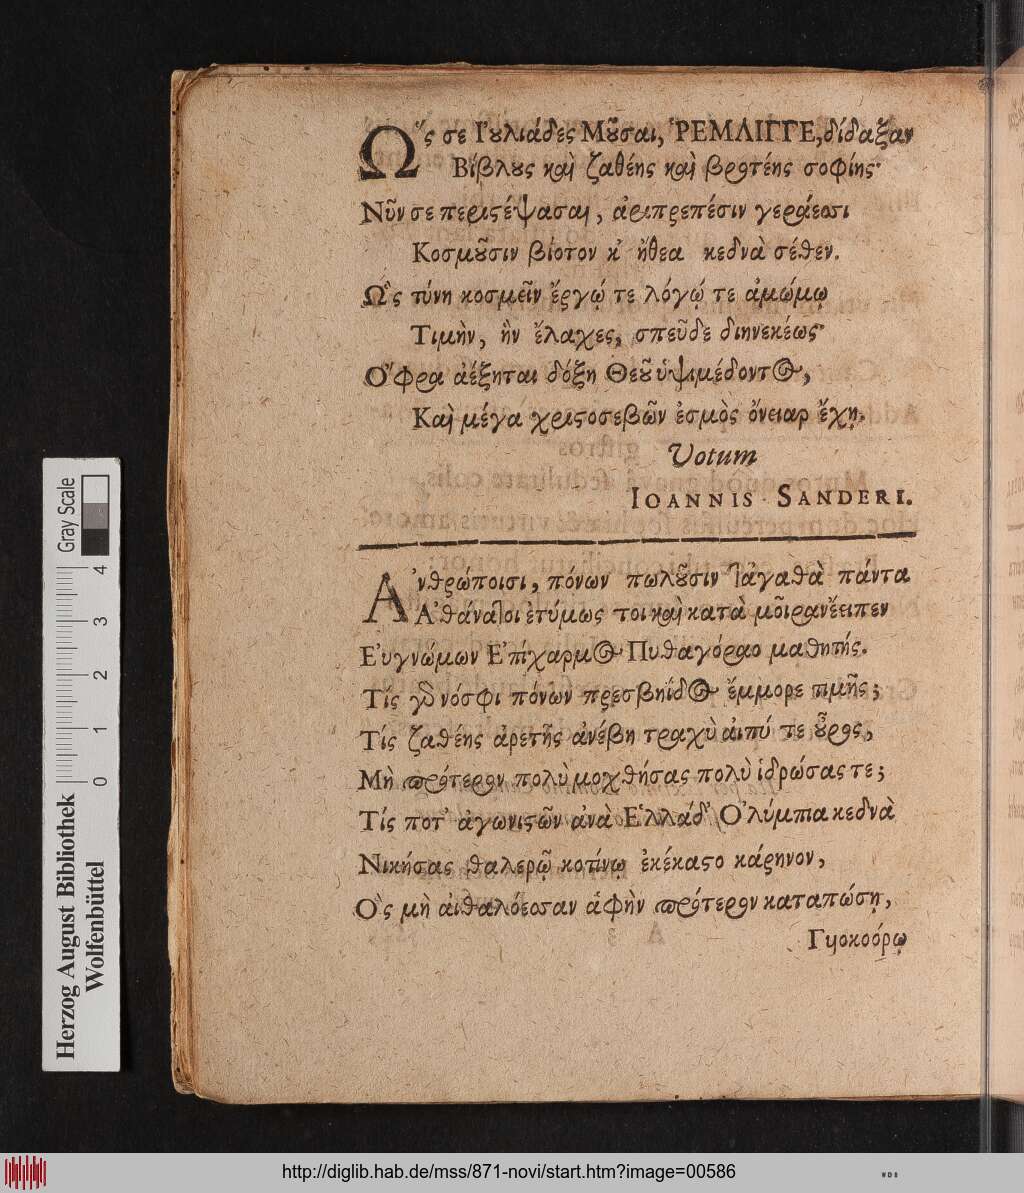 Ὥς σε Ἰουλιάδες Μοῦσαι, ῬΕΜΛΙΓΓΕ, δίδαξαν
Βίβλους καὶ ζαθέης καὶ βροτέης σοφίης·
Νῦν σε περιστέψασαι, ἀριπρεπέσιν γεράεσσι
Κοσμοῦσιν βίοτον κ' ἤθεα κεδνὰ σέθεν.
Ὣς τύνη κοσμεῖν ἔργῳ τε λόγῳ τε ἀμώμῳ
Τιμὴν, ἣν ἔλαχες, σπεῦδε διηνεκέως·
Ὄφρα ἀέξηται δόξη Θεοῦ ὑψιμέδοντος,
Καὶ μέγα χριστοσεβῶν ἑσμὸς ὄνειαρ ἔχῃ.
Votum
IOANNIS SANDERI.
Ἀνθρώποισι, πόνων πωλοῦσιν τἀγαθὰ πάντα
Ἀθάνατοι ἐτύμως τοι καὶ κατὰ μοῖραν ἔειπεν
Εὐγνώμων Ἐπίχαρμος Πυθαγόραο μαθητής.
Τίς γὰρ νόσφι πόνων πρεσβηίδος ἔμμορε τιμῆς;
Τίς ζαθέης ἀρετῆς ἀνέβη τραχὺ αἰπύ τε οὖρος,
Μὴ πρότερον πολὺ μοχθήσας πολὺ ἱδρώσας τε;
Τίς ποτ' ἀγωνιστῶν ἀνὰ Ἑλλάδ' Ὀλύμπια κεδνὰ
Νικήσας θαλερῷ κοτίνῳ ἐκέκαστο κάρηνον,
Ὃς μὴ αἰθαλόεσσαν ἁφὴν πρότερον καταπώσῃ,
Γυιοκοόρῳ
Herzog August Bibliothek
Wolfenbüttel
Gray Scale
0 1 2 3 4
http://diglib.hab.de/mss/871-novi/start.htm?image=00586